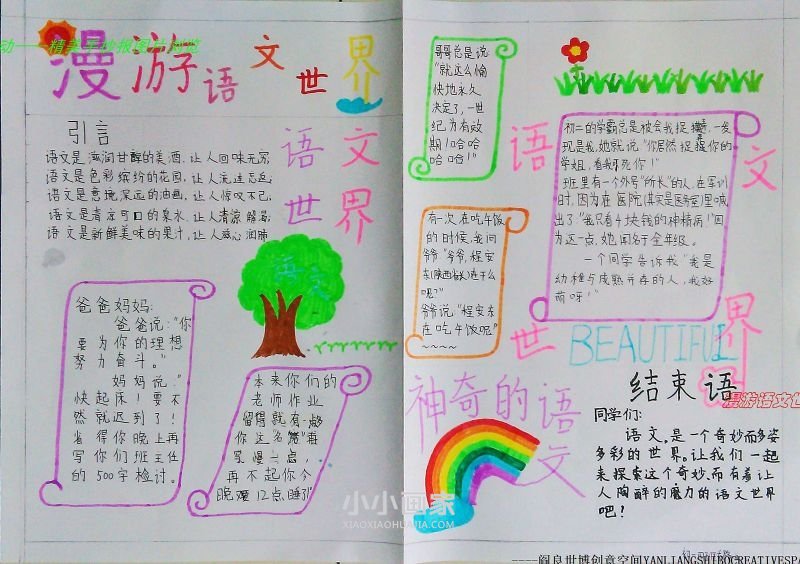 漫游语文世界
动——精美手抄报图片浏览
引言
语文是滋润甘醇的美酒,让人回味无穷
语文是色彩缤纷的花园,让人流连忘返
语文是意境深远的油画,让人惊叹不已
语文是清凉可口的泉水,让人清凉解渴
语文是新鲜美味的果汁,让人滋心润肺
语文
世界
语文
爸爸妈妈:
爸爸说:"你
要为你的理想
努力奋斗。"
妈妈说:"
快起床!要不
然就迟到了!
省得你晚上再
写你们班主任
的500字检讨。
本来你们的
老师作业
留得就有一点多
你这"名落"再
写慢一点,
再不起你今
晚难12点睡了"
哥哥总是说
"就这么愉
快地永久
决定了,一世
纪为有效
期!哈哈
哈哈!"
有一次在吃午饭
的时候,我问
爷爷"爷爷,程安
东(陕西省长)在干么
呢?"
爷爷说"程安东
在吃午饭呢"
~~~~
初二的学霸总是被会我捉,一发
现是我,她就说"你居然捉你的
学姐,看我不死你!"
班里有一个外号"所长"的人,在军训
时,因为在医院(其实是医务室)里喊
出了"我只看4块钱的神精病!"因
为这一点,她闻名于全年级。
一个同学告诉我"我是
幼稚与成熟并存的人,我好
萌呀!"
语
文
世
界
BEAUTIFUL
神奇的语
文
漫游语文世
结束语
同学们:
语文,是一个奇妙而多姿
多彩的世界。让我们一起
来探索这个奇妙、而有着让
人陶醉的魔力的语文世界
吧!
小小画家
XIAOXIAOHUAJIA.COM
----阎良世博创意空间YANLIANGSHIBOCREATIVESPA